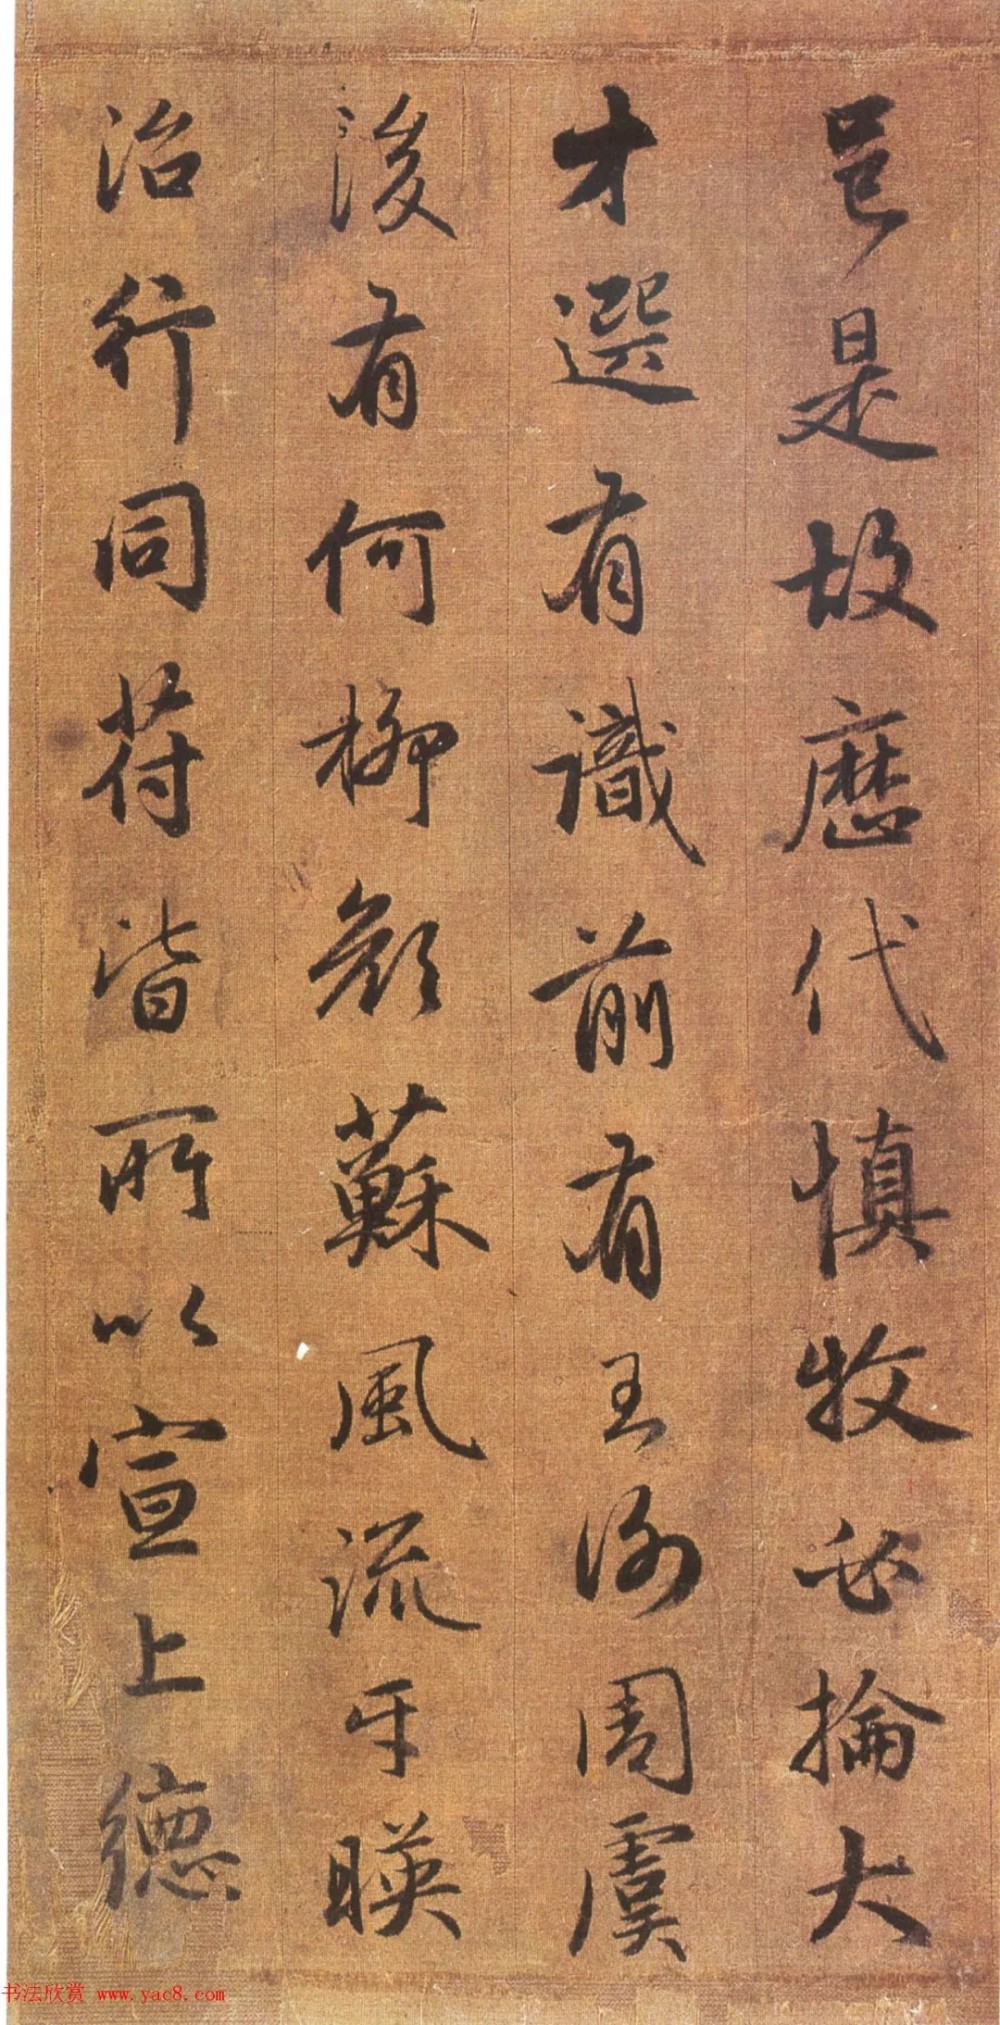 邑是故歷代慎牧必掄大
才選有識前有王謝周虞
後有何柳顏蘇風流乎暎
治行同符皆所以宣上德
书法欣赏 www.yac8.com